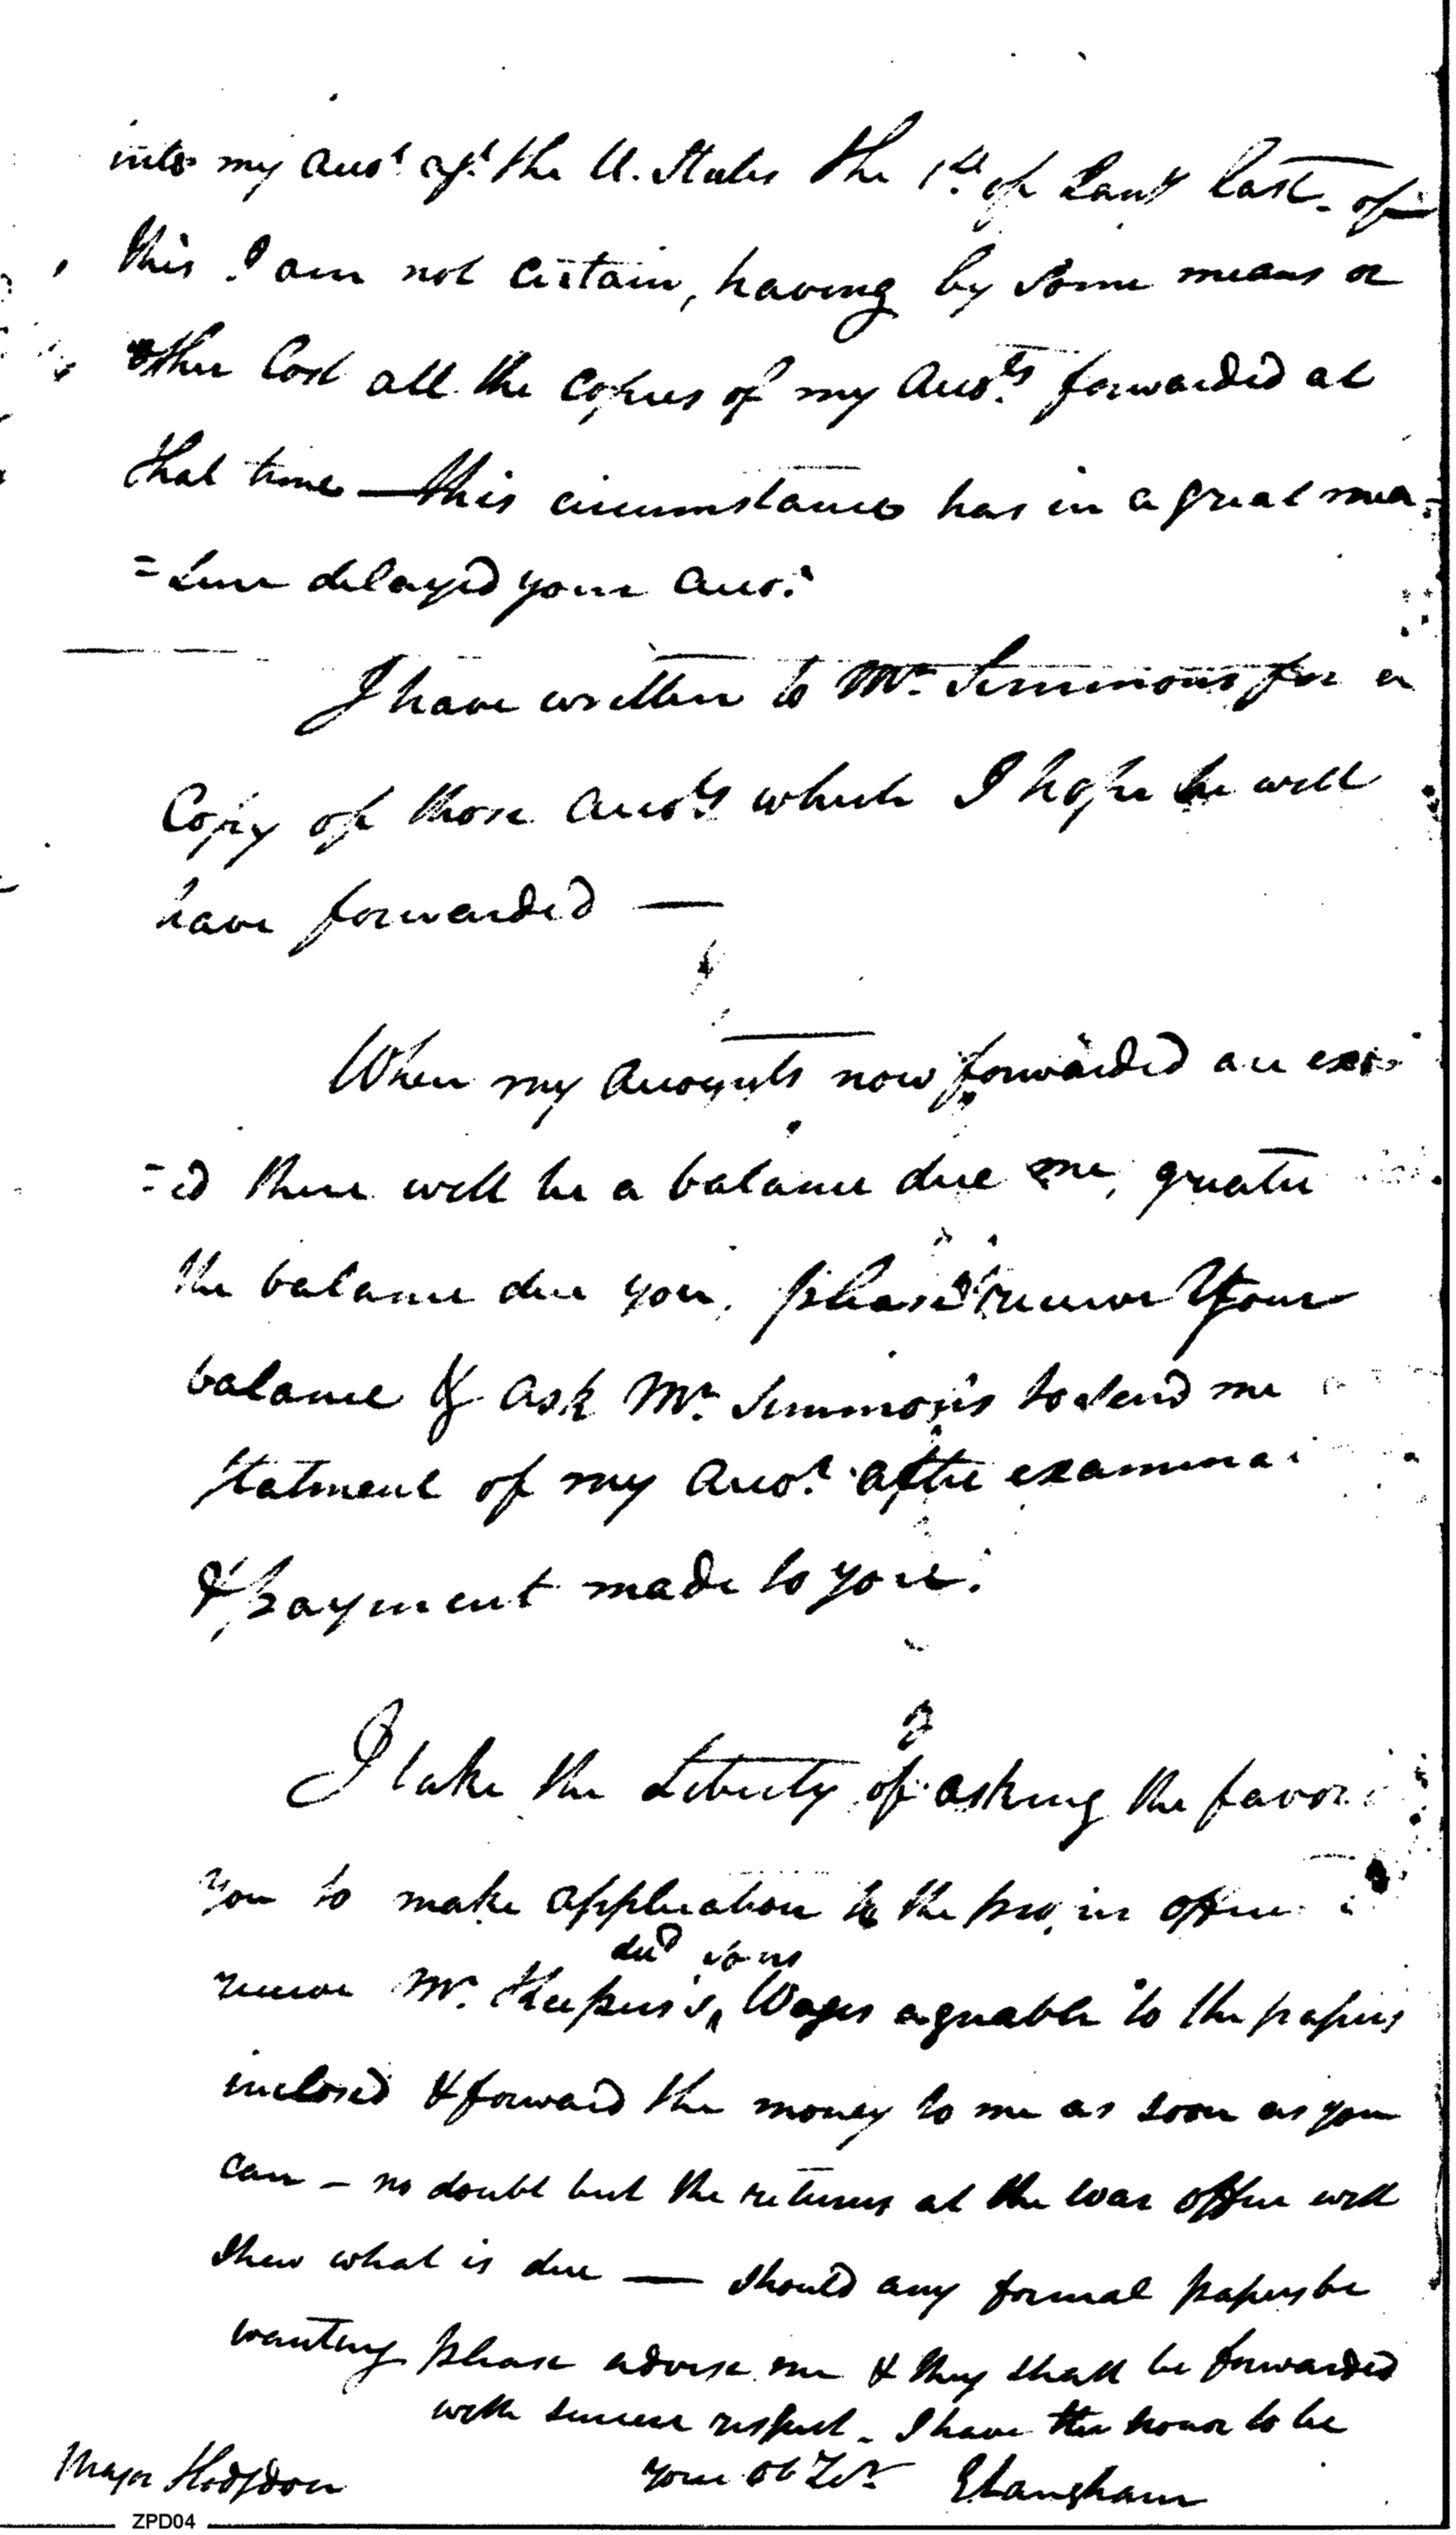 into my Acco.t ag.t the U. States the 1.st of Jan.y last. of
this I am not certain, having by some means or
other lost all the copies of my Acco.ts forwarded at
that time — this circumstance has in a great mea=
=sure delayed your Acco.t
I have written to M.r Simmons for a
Copy of those Acco.ts which I hope he will
have forwarded —
When my Accounts now forwarded are exa
=ed there will be a balance due me, greater
the balance due you, please receive Your
balance & ask M.r Simmons to send me
statment of my Acco.t after examina
& payment made to you.
I take the Liberty of asking the favor
you to make application to the office
receive M.r Wages agreable to the papers
inclosed & forward the money to me as soon as you
can — no doubt but the returns at the War office will
shew what is due — should any formal papers be
wanting please advise me & they shall be forwarded
with sincere respect. I have the honor to be
Major Hodgdon your Ob Ser.t E Langham
ZPD04